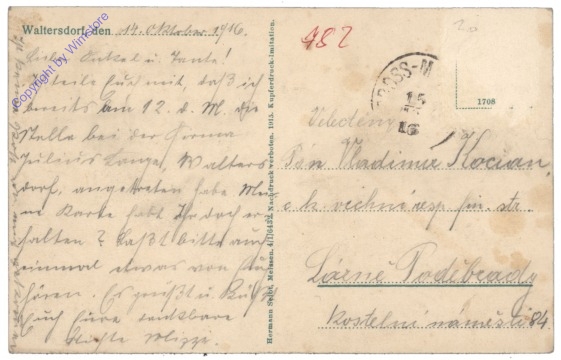 Waltersdorf, den 14. Oktober 1916.
Lieber Onkel u. Tante!
teile Euch mit, daß ich
bereits am 12. d. M. die
Stelle bei der Firma
Julius Lange, Walters
dorf, angetreten habe. Mei
ne Karte habt Ihr doch er
halten? Laßt bitte auch
einmal etwas von Euch
hören. Es grüßt u. küßt
Euch Eure dankbare
Nichte Mizze.
Copyright by WinStore
Hermann Seibt, Meissen. Nachdruck verboten. 1915. Kupferdruck-Imitation.
482
GROSS-M
15
16
1708
Pan Vladimir Kocian,
c. k. vrchní resp. fin. str.
Lázně Poděbrady
Kostelní náměstí 84